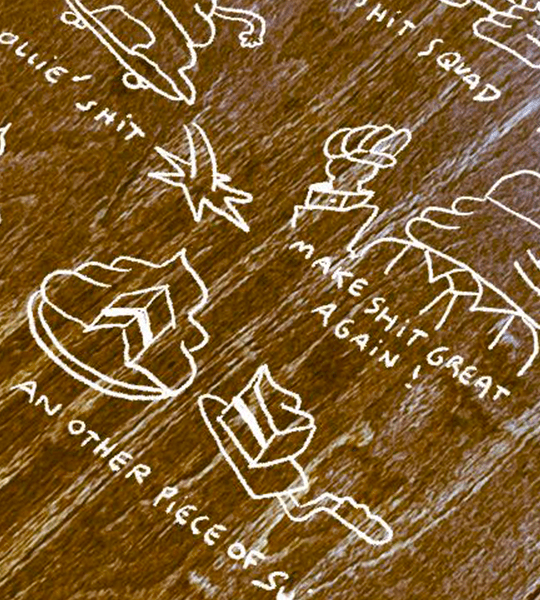 OLLIE' SHIT
SHIT SQUAD
MAKE SHIT GREAT
AGAIN!
AN OTHER PIECE OF